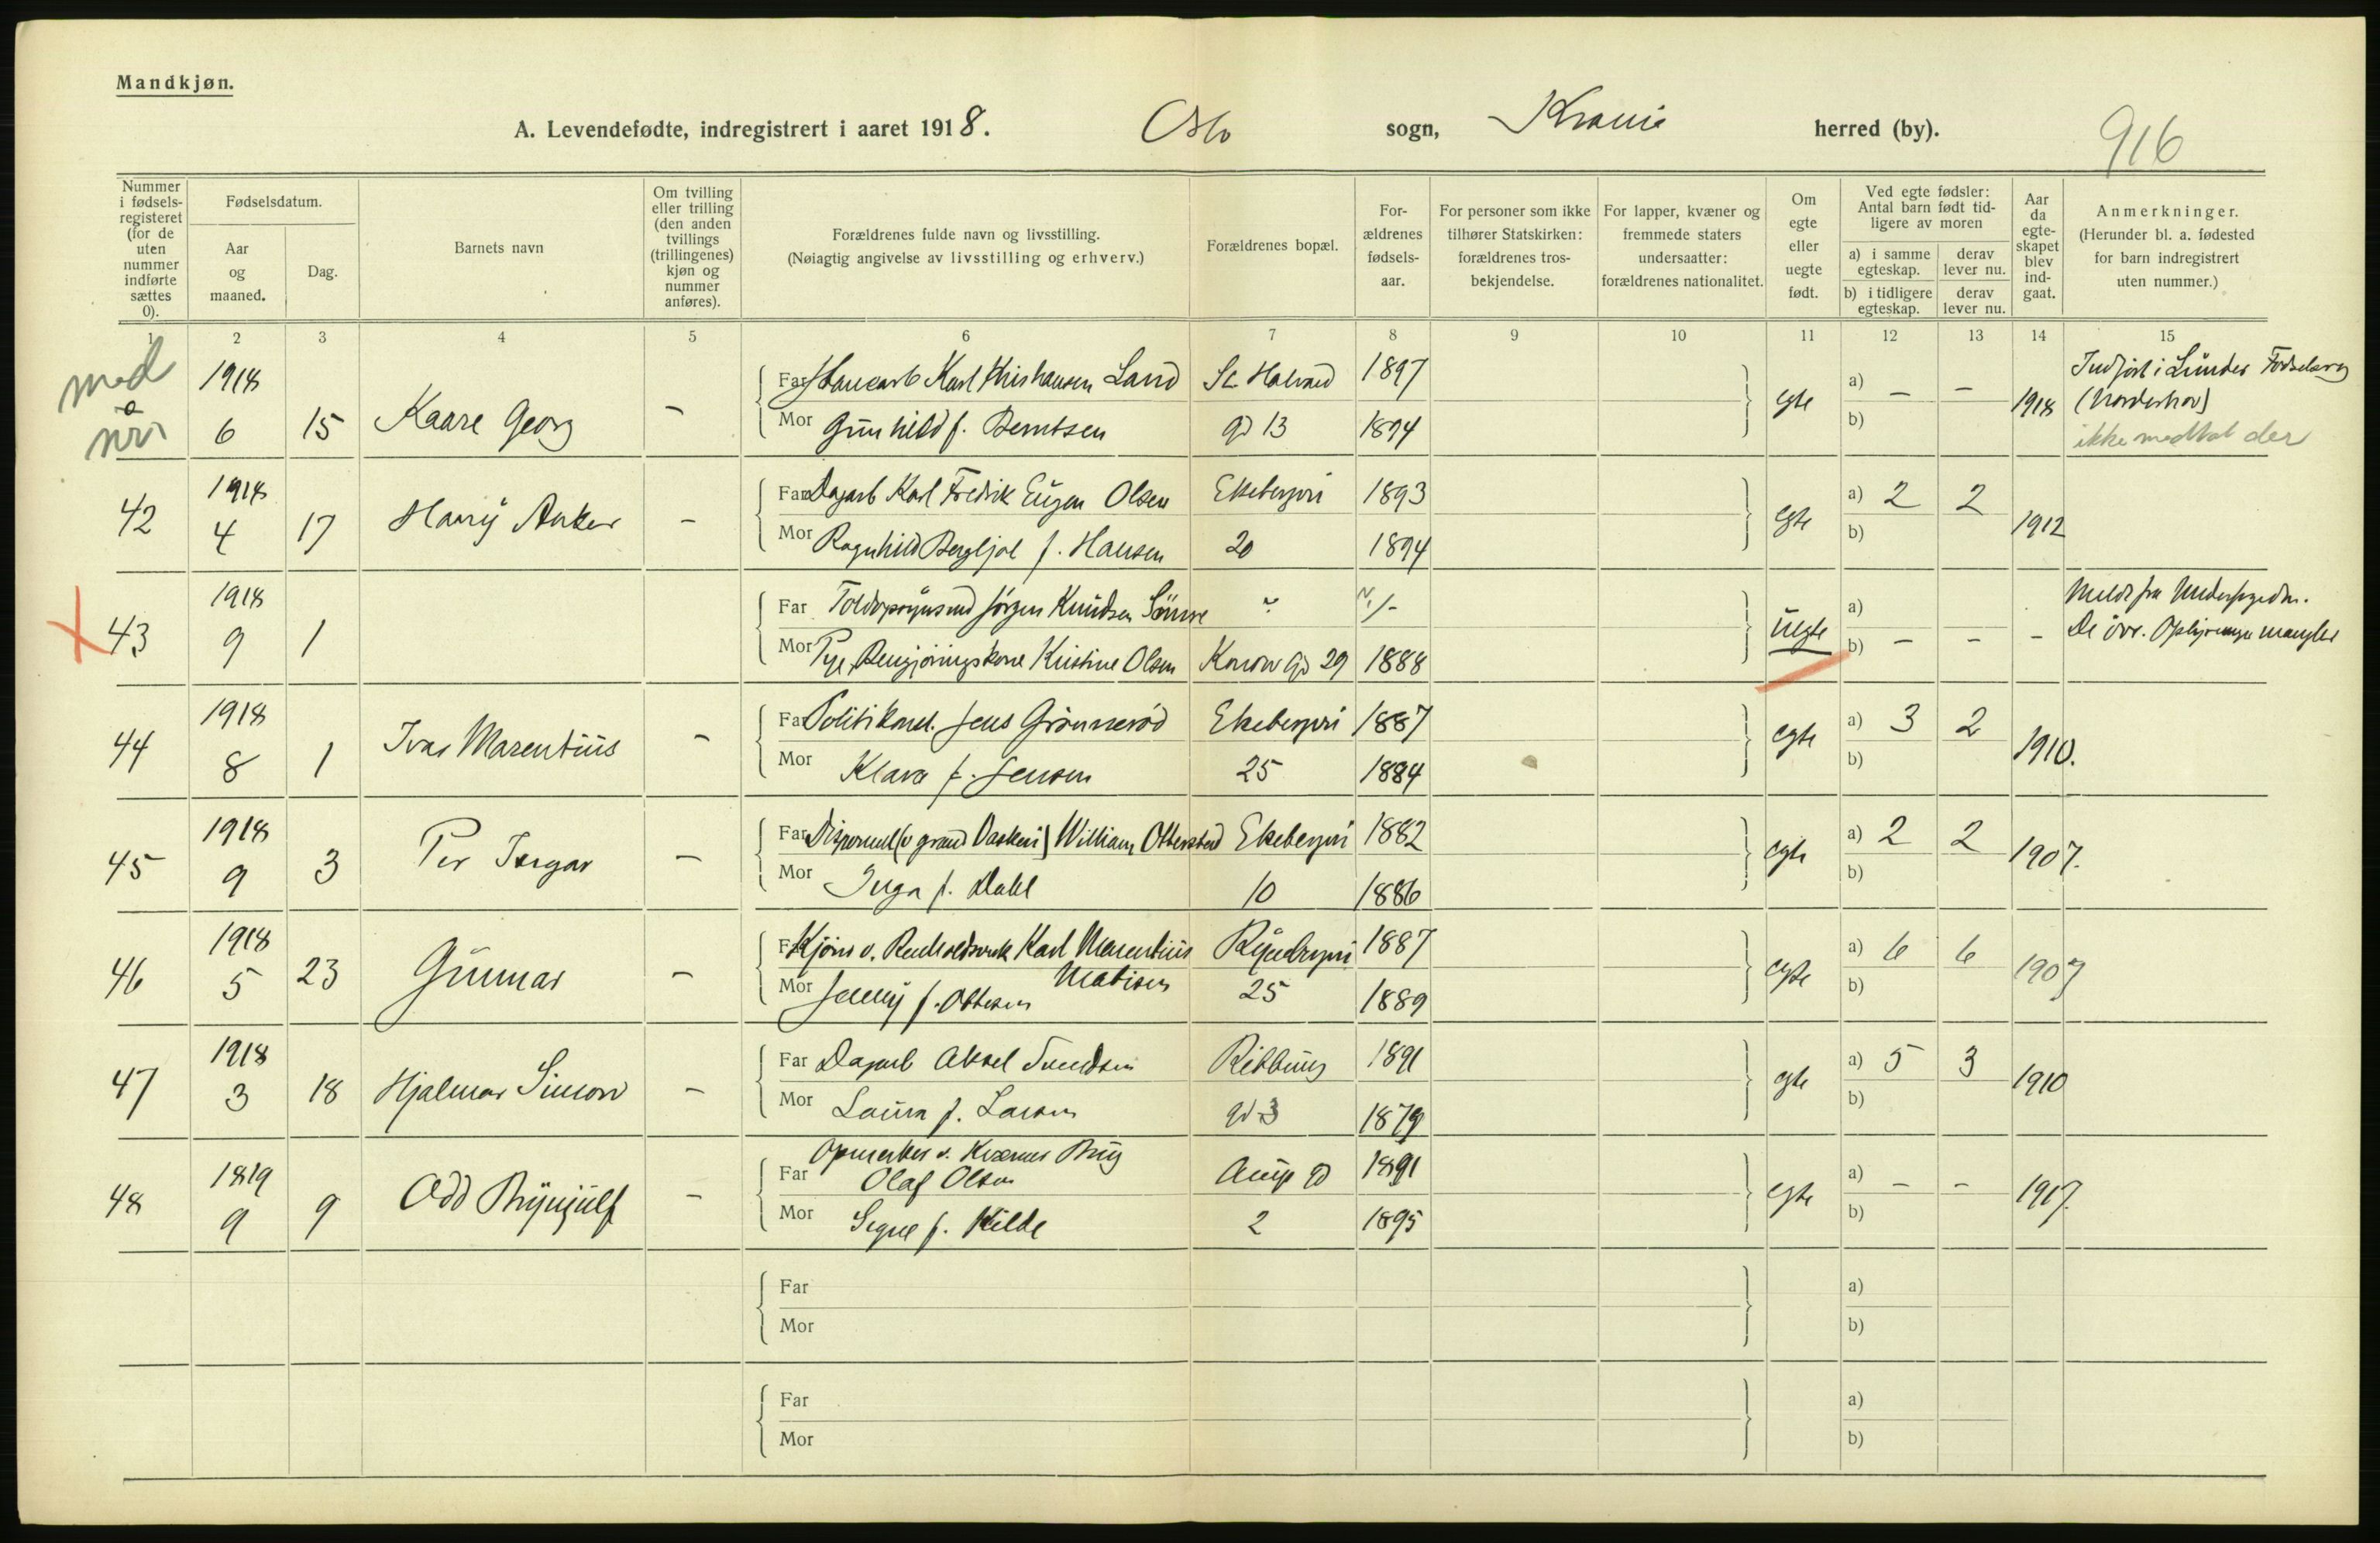 Mandkjøn.
A. Levendefødte, indregistrert i aaret 1918. Oslo sogn, Krania herred (by). 916
Nummer i fødsels-registeret (for de uten nummer indførte sættes 0).
Fødselsdatum.
Aar og maaned.
Dag.
Barnets navn
Om tvilling eller trilling (den anden tvillings (trillingenes) kjøn og nummer anføres).
Forældrenes fulde navn og livsstilling.
(Nøiagtig angivelse av livsstilling og erhverv.)
Forældrenes bopæl.
For-ældrenes fødsels-aar.
For personer som ikke tilhører Statskirken: forældrenes tros-bekjendelse.
For lapper, kvæner og fremmede staters undersaatter: forældrenes nationalitet.
Om egte eller uegte født.
Ved egte fødsler: Antal barn født tid-ligere av moren
a) i samme egteskap. derav lever nu.
b) i tidligere egteskap. derav lever nu.
Aar da egte-skapet blev ind-gaat.
Anmerkninger.
(Herunder bl. a. fødested for barn indregistrert uten nummer.)
1 2 3 4 5 6 7 8 9 10 11 12 13 14 15
med 1918 Far Karl Kristiansen Land St Halvard 1897 a) – – Indført i Lunder Fødselsreg
0 6 15 Kaare Georg – Mor Gunhild f. Berntsen gd 13 1894 egte b) 1918 (Norderhov)
nr ikke medtat der
1918 Far Dagarb Karl Fredrik Eugen Olsen Ekebergvei 1893 a) 2 2
42 4 17 Harry Anker – Mor Ragnhild Bergljot f. Hansen 20 1894 egte b) 1912
1918 Far Toldopsynsmd Jørgen Knudsen ~ a) Meldt fra
43 9 1 Mor Pge Rengjøringskone Kristine Olsen Konow gd 29 1888 uegte b) – – – De øvr. Oplysninger mangler
1918 Far Politikonst. Jens Grønnerød Ekebergvei 1887 a) 3 2
44 8 1 Ivar Marentius – Mor Klara f. Jensen 25 1884 egte b) 1910.
1918 Far William Otterstad Ekebergvei 1882 a) 2 2
45 9 3 Per Ingar – Mor Inga f. Dahl 10 1886 egte b) 1907.
1918 Far Kjører v. Renholdsverk Karl Marentius Ryenbergvei 1887 a) 6 6
46 5 23 Gunnar – Mathisen
Mor Jenny f. Ottesen 25 1889 egte b) 1907
1918 Far Dagarb Aksel Svendsen Ribbung 1891 a) 5 3
47 3 18 Hjalmar Simon – Mor Laura f. Larsen gd 3 1879 egte b) 1910
Opmerker v. Kværner Brug
1819 Far Olaf Olsen Amp gd 1891 a) – –
48 9 9 Odd Brynjulf – Mor Signe f. Kilde 2 1895 egte b) 1917.
Far a)
Mor b)
Far a)
Mor b)